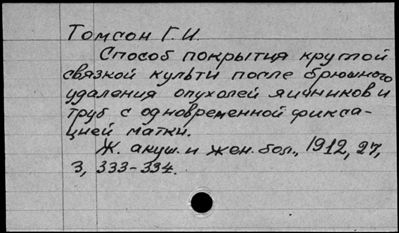 Томсон Г.И.
Способ покрытия круглой
связкой культи после брюшного
удаления опухолей яичников и
труб с одновременной фикса-
цией матки.
Ж. акуш. и жен. бол., 1912, 27,
3, 333-334.